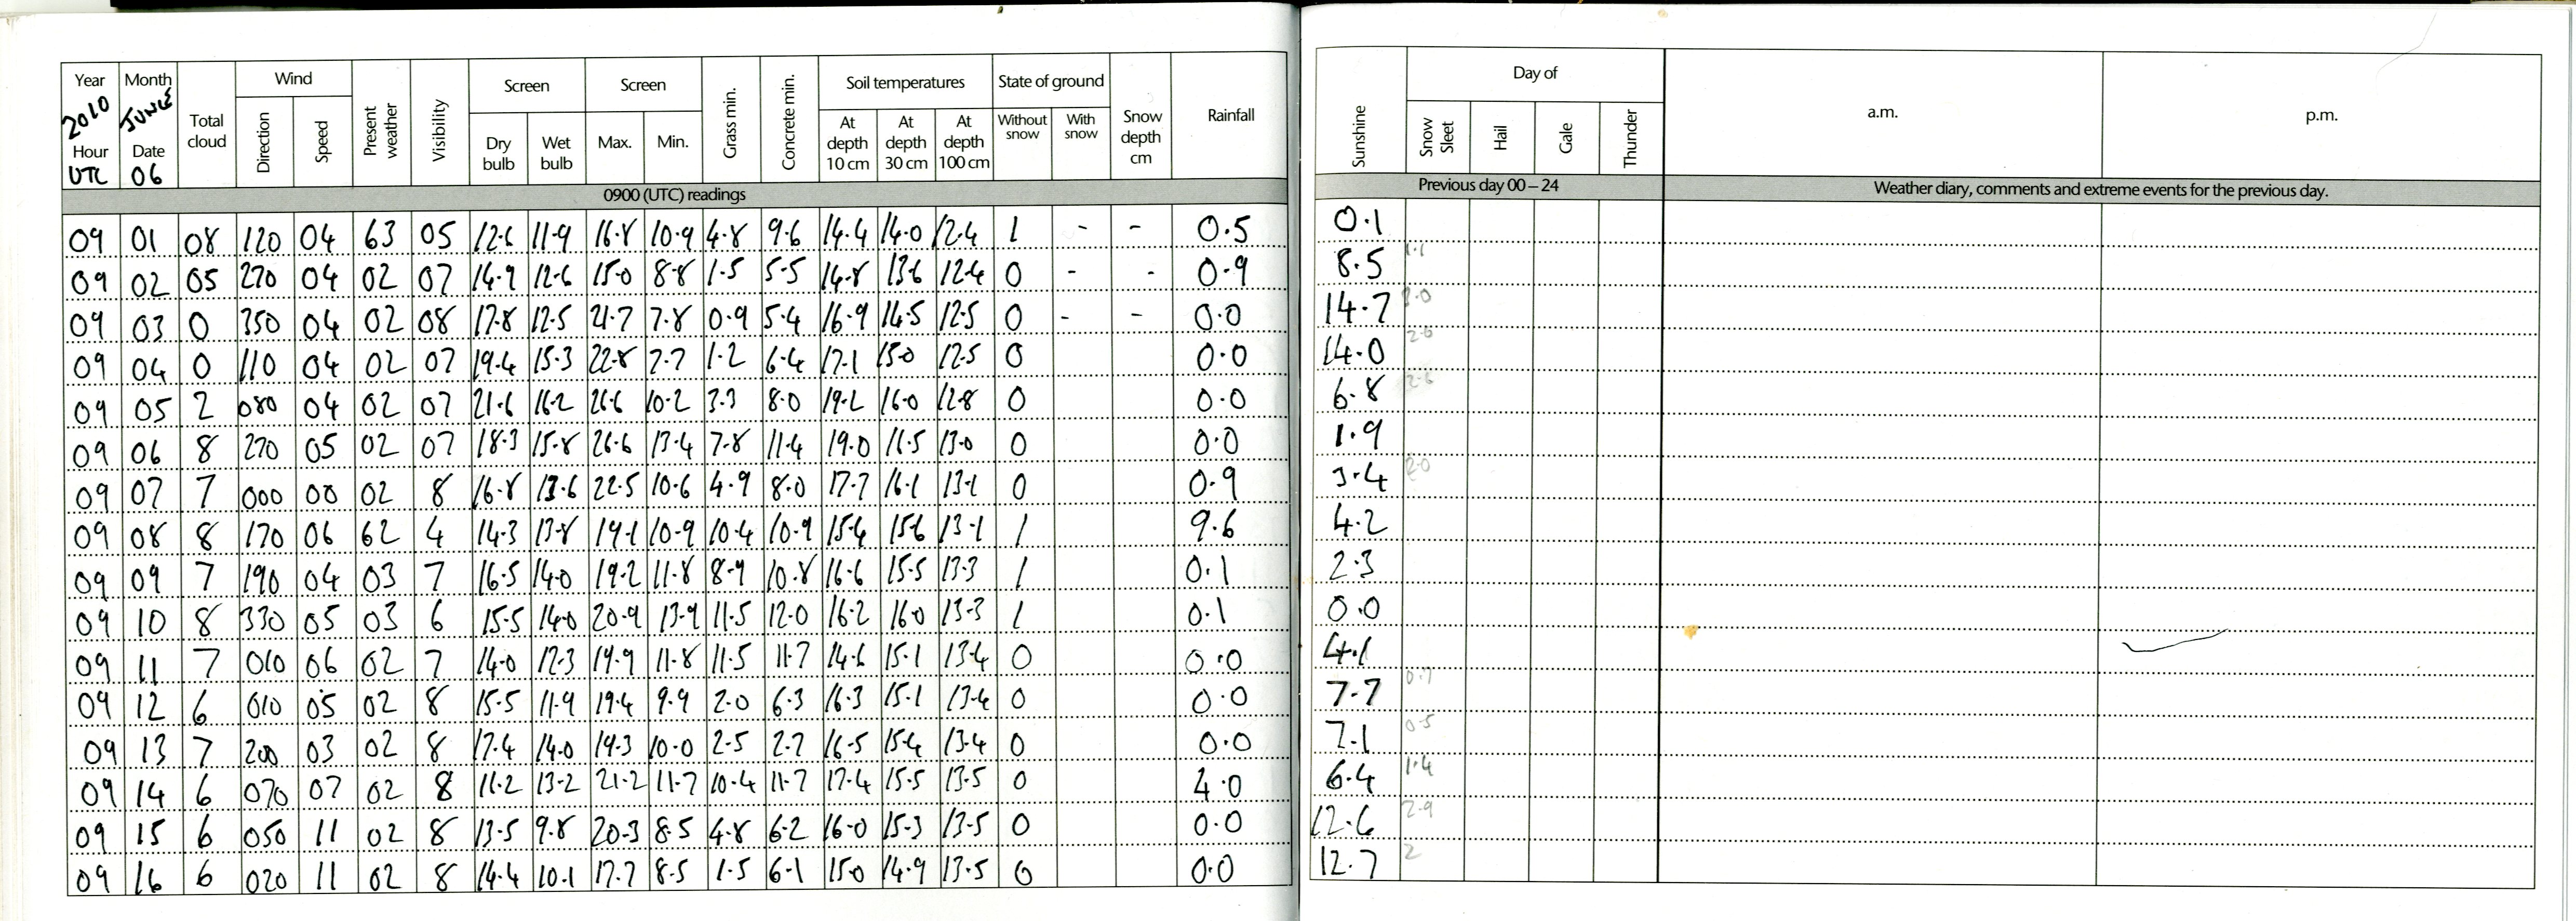 Year Month Total cloud Wind Present weather Visibility Screen Screen Grass min. Concrete min. Soil temperatures State of ground Snow depth cm Rainfall Sunshine Day of a.m. p.m.
2010 JUNE Direction Speed Dry bulb Wet bulb Max. Min. At depth 10 cm At depth 30 cm At depth 100 cm Without snow With snow Snow Sleet Hail Gale Thunder
Hour Date
UTC 06
0900 (UTC) readings Previous day 00 – 24 Weather diary, comments and extreme events for the previous day.
09 01 08 120 04 63 05 12.6 11.9 16.8 10.9 4.8 9.6 14.4 14.0 12.4 1 - - 0.5 0.1
09 02 05 270 04 02 07 14.9 12.6 15.0 8.8 1.5 5.5 14.8 13.6 12.4 0 - - 0.9 8.5 1.1
09 03 0 350 04 02 08 17.8 12.5 21.7 7.8 0.9 5.4 16.9 14.5 12.5 0 - - 0.0 14.7
09 04 0 110 04 02 07 19.4 15.3 22.8 7.7 1.2 6.4 17.1 15.0 12.5 0 0.0 14.0
09 05 2 080 04 02 07 21.6 16.2 26.6 10.2 3.3 8.0 19.2 16.0 12.8 0 0.0 6.8
09 06 8 270 05 02 07 18.3 15.8 26.6 13.4 7.8 11.4 19.0 16.5 13.0 0 0.0 1.9
09 07 7 000 00 02 8 16.8 13.6 22.5 10.6 4.9 8.0 17.7 16.1 13.1 0 0.9 3.4 2.0
09 08 8 170 06 62 4 14.3 13.8 19.1 10.9 10.4 10.9 15.4 15.6 13.1 1 9.6 4.2
09 09 7 190 04 03 7 16.5 14.0 19.2 11.8 8.9 10.8 16.6 15.5 13.3 1 0.1 2.3
09 10 8 330 05 03 6 15.5 14.0 20.9 13.9 11.5 12.0 16.2 16.0 13.3 1 0.1 0.0
09 11 7 010 06 02 7 14.0 12.3 19.9 11.8 11.5 11.7 14.6 15.1 13.4 0 0.0 4.1
09 12 6 010 05 02 8 15.5 11.9 19.4 9.9 2.0 6.3 16.3 15.1 13.4 0 0.0 7.7 0.7
09 13 7 200 03 02 8 17.4 14.0 19.3 10.0 2.5 2.7 16.5 15.4 13.4 0 0.0 7.1 0.5
09 14 6 070 07 02 8 13.2 21.2 11.7 10.4 11.7 17.4 15.5 13.5 0 4.0 6.4 1.4
09 15 6 050 11 02 8 13.5 9.8 20.3 8.5 4.8 6.2 16.0 15.3 13.5 0 0.0 12.6 2.9
09 16 6 020 11 02 8 14.4 10.1 17.7 8.5 1.5 6.1 15.0 14.9 13.5 0 0.0 12.7 2